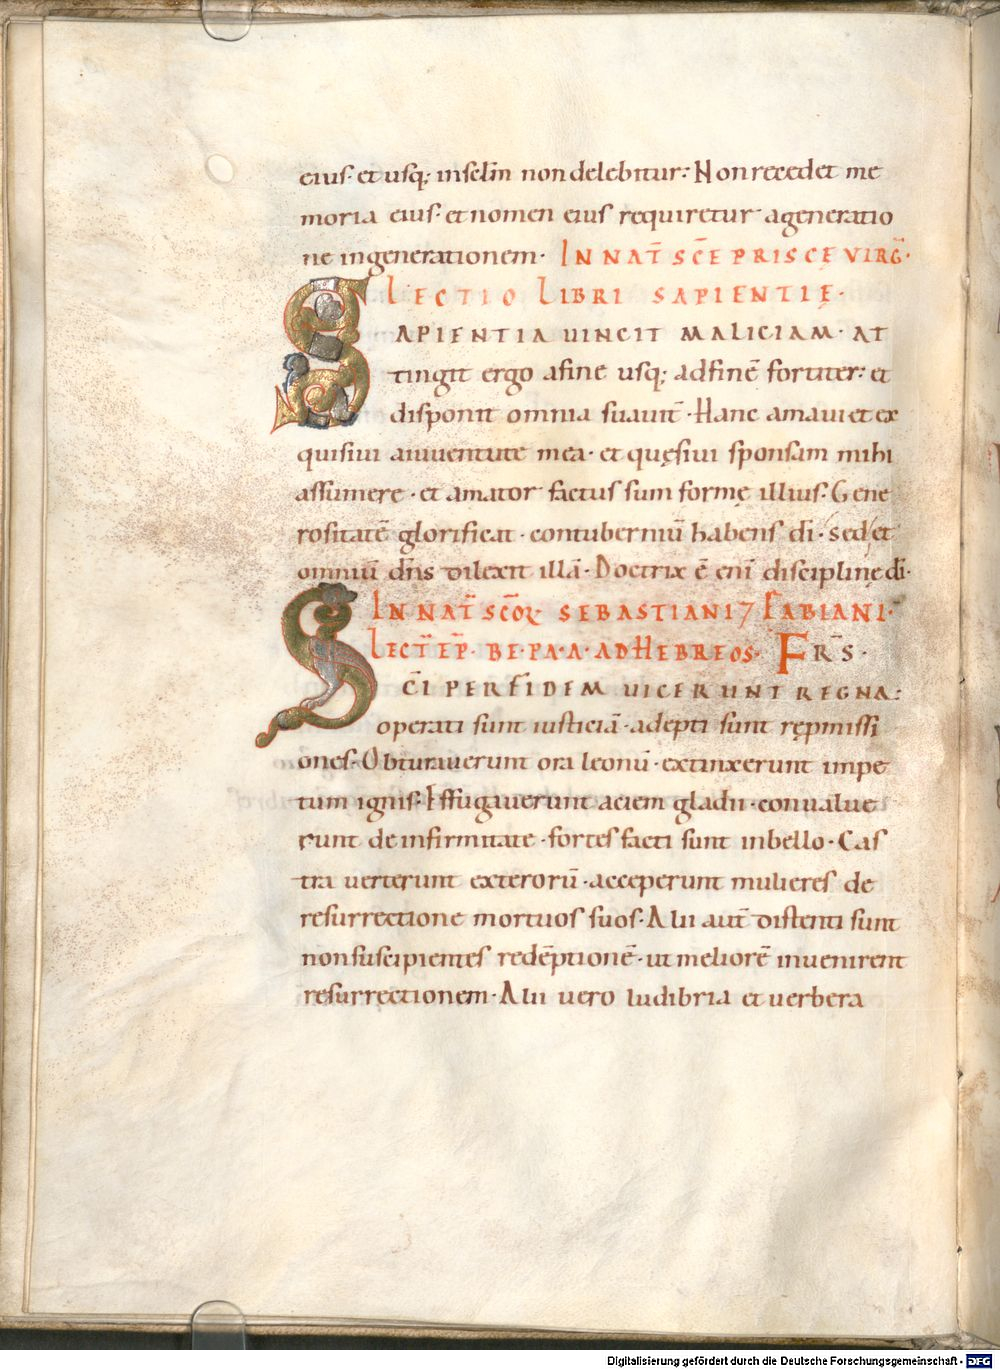 eius· et usq; in sclm̄ non delebitur: Non recedet me
moria eius· et nomen eius requiretur a generatio
ne in generationem· IN NAT̄ SC̄E PRISCE VIRḠ·
LECTIO LIBRI SAPIENTIE·
SAPIENTIA UINCIT MALICIAM· AT
tingit ergo afine usq; ad finē fortiter: et
disponit omnia suauit̄· Hanc amaui et ex
quisiui a iuuentute mea· et quęsiui sponsam mihi
assumere· et amator factus sum formę illius: Gene
rositatē glorificat· contuberniū habens di· sed et
omniū dn̄s dilexit illā· Doctrix ē enī disciplinę dī·
IN NAT̄ SC̄OꝜ SEBASTIANI ⁊ FABIANI·
LECT̄ EP̄· BE· PA· A· AD HEBREOS· FR̄S·
SC̄I PER FIDEM UICERUNT REGNA:
operati sunt iusticiā· adepti sunt repmissi
ones· Obturauerunt ora leonū· extinxerunt impe
tum ignis: Effugauerunt aciem gladii· conualue
runt de infirmitate· fortes facti sunt in bello· Cas
tra uerterunt exterorū· acceperunt mulieres de
resurrectione mortuos suos· Alii aut̄ distenti sunt
non suscipientes redēptionē· ut meliorē inuenirent
resurrectionem· Alii uero ludibria et uerbera
Digitalisierung gefördert durch die Deutsche Forschungsgemeinschaft - DFG